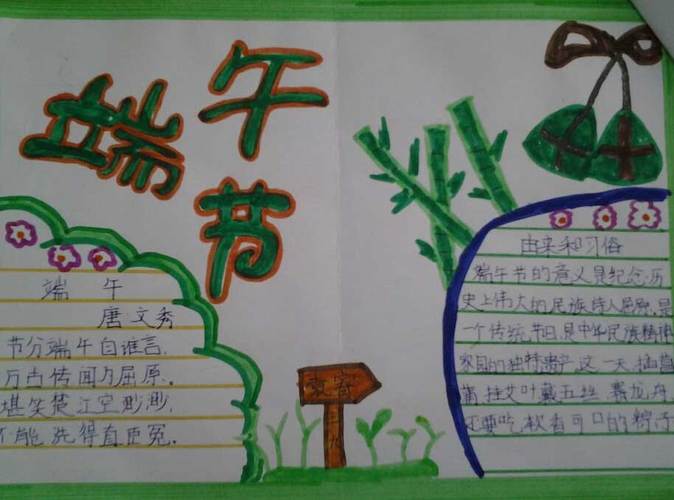 端午节
由来和习俗
端午节的意义是纪念历
史上伟大的民族诗人屈原,是
一个传统节日,是中华民族精神
家园的独特遗产,这一天,插菖
蒲,挂艾叶戴五丝 赛龙舟,
还要吃软香可口的粽子
端 午
唐 文秀
节分端午自谁言,
万古传闻为屈原。
堪笑楚江空渺渺,
不能洗得直臣冤。